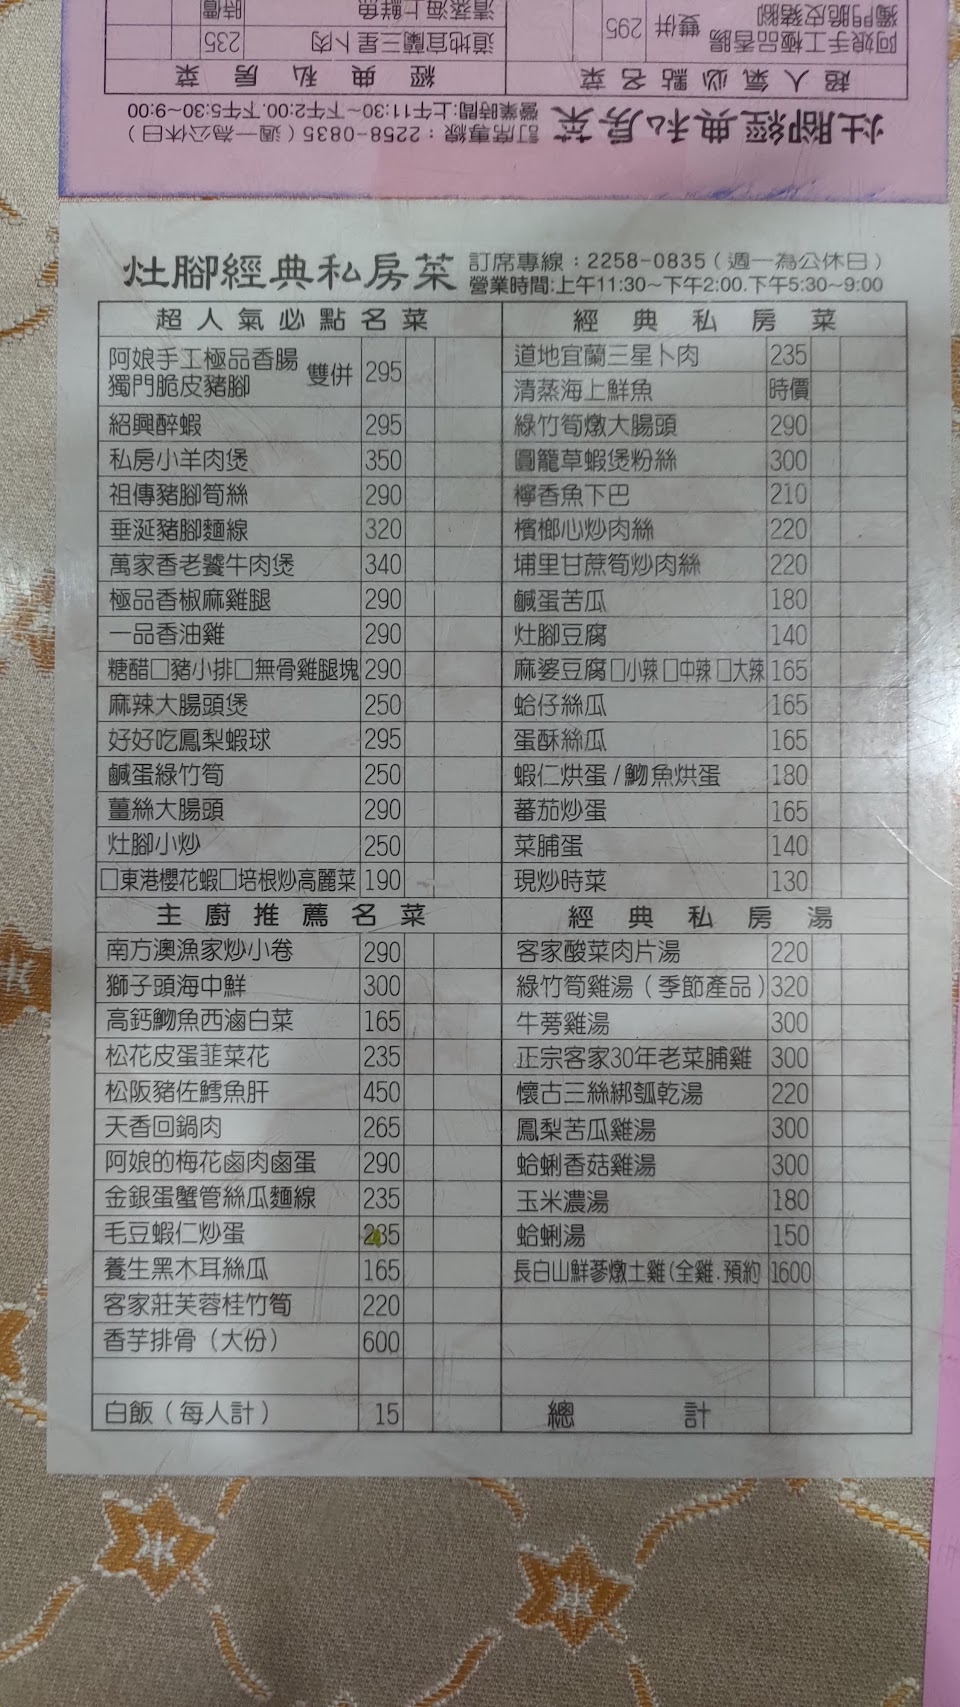 阿娘手工極品香腸 雙併 295
獨門脆皮豬腳
道地宜蘭三星卜肉 235
清蒸海上鮮魚 時價
超人氣必點名菜
經典私房菜
灶腳經典私房菜
訂席專線：2258-0835（週一為公休日）
營業時間:上午11:30~下午2:00.下午5:30~9:00
灶腳經典私房菜
訂席專線：2258-0835（週一為公休日）
營業時間:上午11:30~下午2:00.下午5:30~9:00
超人氣必點名菜
阿娘手工極品香腸
獨門脆皮豬腳 雙併 295
紹興醉蝦 295
私房小羊肉煲 350
祖傳豬腳筍絲 290
垂涎豬腳麵線 320
萬家香老饕牛肉煲 340
極品香椒麻雞腿 290
一品香油雞 290
糖醋□豬小排□無骨雞腿塊 290
麻辣大腸頭煲 250
好好吃鳳梨蝦球 295
鹹蛋綠竹筍 250
薑絲大腸頭 290
灶腳小炒 250
□東港櫻花蝦□培根炒高麗菜 190
主廚推薦名菜
南方澳漁家炒小卷 290
獅子頭海中鮮 300
高鈣魩魚西滷白菜 165
松花皮蛋韭菜花 235
松阪豬佐鱈魚肝 450
天香回鍋肉 265
阿娘的梅花鹵肉鹵蛋 290
金銀蛋蟹管絲瓜麵線 235
毛豆蝦仁炒蛋 235
養生黑木耳絲瓜 165
客家莊芙蓉桂竹筍 220
香芋排骨（大份） 600
白飯（每人計） 15
經典私房菜
道地宜蘭三星卜肉 235
清蒸海上鮮魚 時價
綠竹筍燉大腸頭 290
圓籠草蝦煲粉絲 300
檸香魚下巴 210
檳榔心炒肉絲 220
埔里甘蔗筍炒肉絲 220
鹹蛋苦瓜 180
灶腳豆腐 140
麻婆豆腐□小辣□中辣□大辣 165
蛤仔絲瓜 165
蛋酥絲瓜 165
蝦仁烘蛋/魩魚烘蛋 180
蕃茄炒蛋 165
菜脯蛋 140
現炒時菜 130
經典私房湯
客家酸菜肉片湯 220
綠竹筍雞湯（季節產品） 320
牛蒡雞湯 300
正宗客家30年老菜脯雞 300
懷古三絲綁瓠乾湯 220
鳳梨苦瓜雞湯 300
蛤蜊香菇雞湯 300
玉米濃湯 180
蛤蜊湯 150
長白山鮮蔘燉土雞(全雞.預約 1600
總計